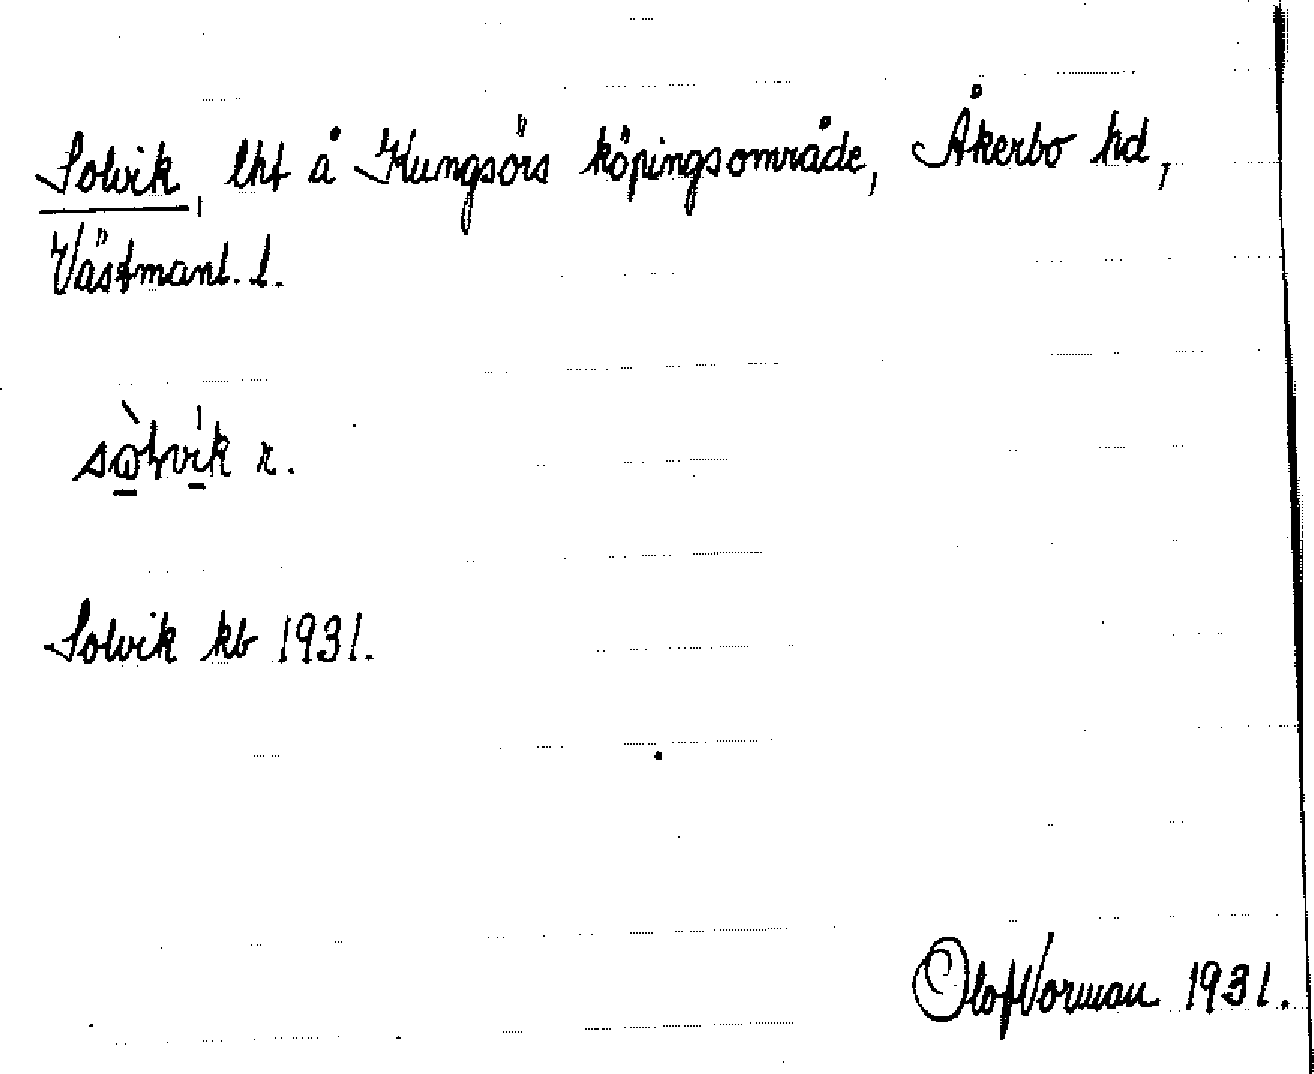 Solvik, lht å Kungsörs köpingsområde, Åkerbo hd,
Västmanl. l.
Solvik kb 1931.
Olof Norman 1931.